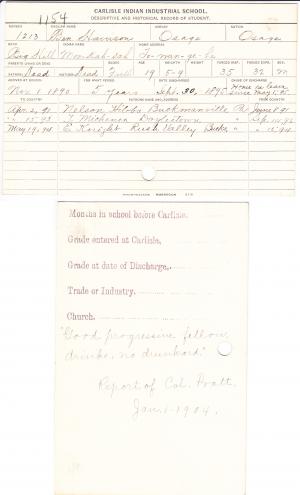 1154
CARLISLE INDIAN INDUSTRIAL SCHOOL.
DESCRIPTIVE AND HISTORICAL RECORD OF STUDENT.
NUMBER ENGLISH NAME AGENCY NATION
1213 Ben Harrison Osage Osage
BAND INDIAN NAME HOME ADDRESS
Big Hill
PARENTS LIVING OR DEAD BLOOD AGE HEIGHT WEIGHT FORCED INSP. FORCED EXPR. SEX
Dead Dead Full 19 5-9 35 32 M
ARRIVED AT SCHOOL FOR WHAT PERIOD DATE DISCHARGED CAUSE OF DISCHARGE
Nov 1 1890 5 Years Sept. 30, 1895 Home on leave since May 1, 95
TO COUNTRY PATRONS NAME AND ADDRESS FROM COUNTRY
Apr. 2, 91 Nelson Buckmanville Pa June 8 91
" 15-93 Michener Doylestown " Sep. 14, 93
May 19, 94 E. Knight Rush Valley Bucks " " 15, 94
Months in school before Carlisle,
Grade entered at Carlisle,
Grade at date of Discharge,
Trade or Industry.
Church.
"Good progressive fellow,
drinks, no drunkard."
Report of Col. Pratt
Jan. 1-1904.